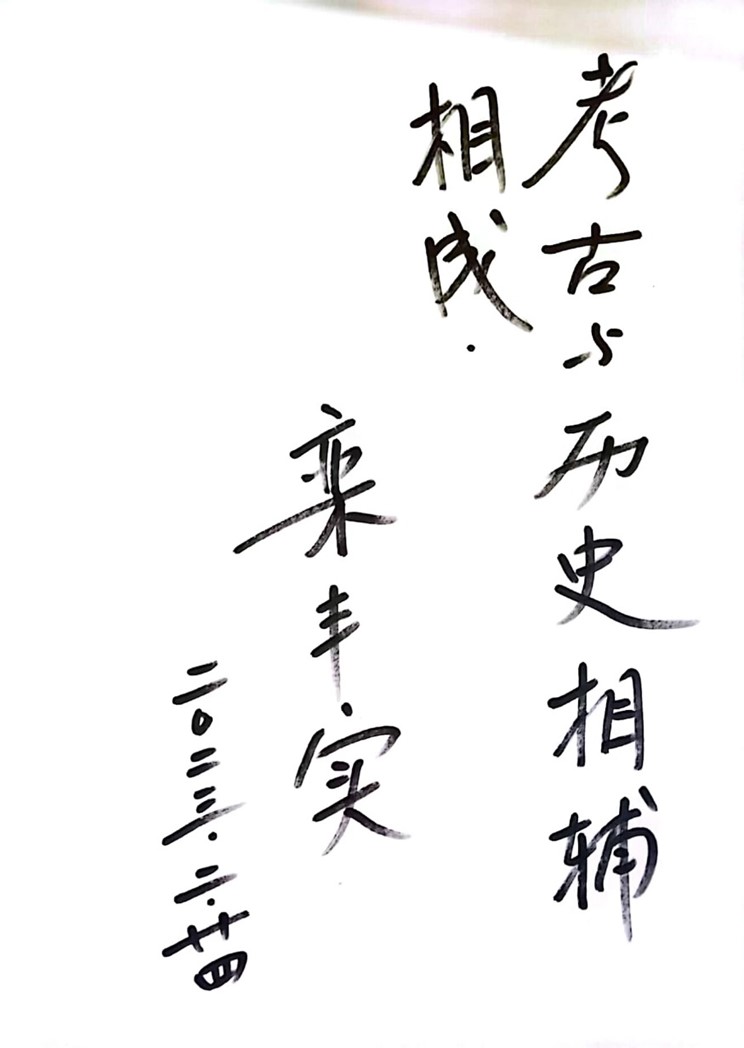 考古与历史相辅
相成.
栾丰实
二0二三.二.廿四